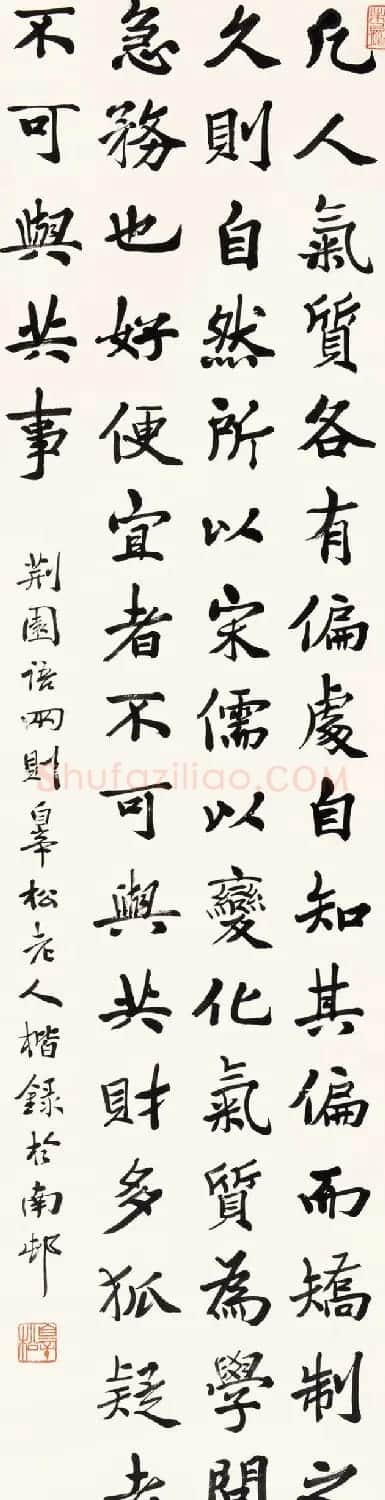 凡人氣質各有偏處自知其偏而矯制之
久則自然所以宋儒以變化氣質為學問
急務也好便宜者不可與共財多狐疑者
不可與共事
荆園語兩則皋松老人楷録於南邨
Shufaziliao.COM